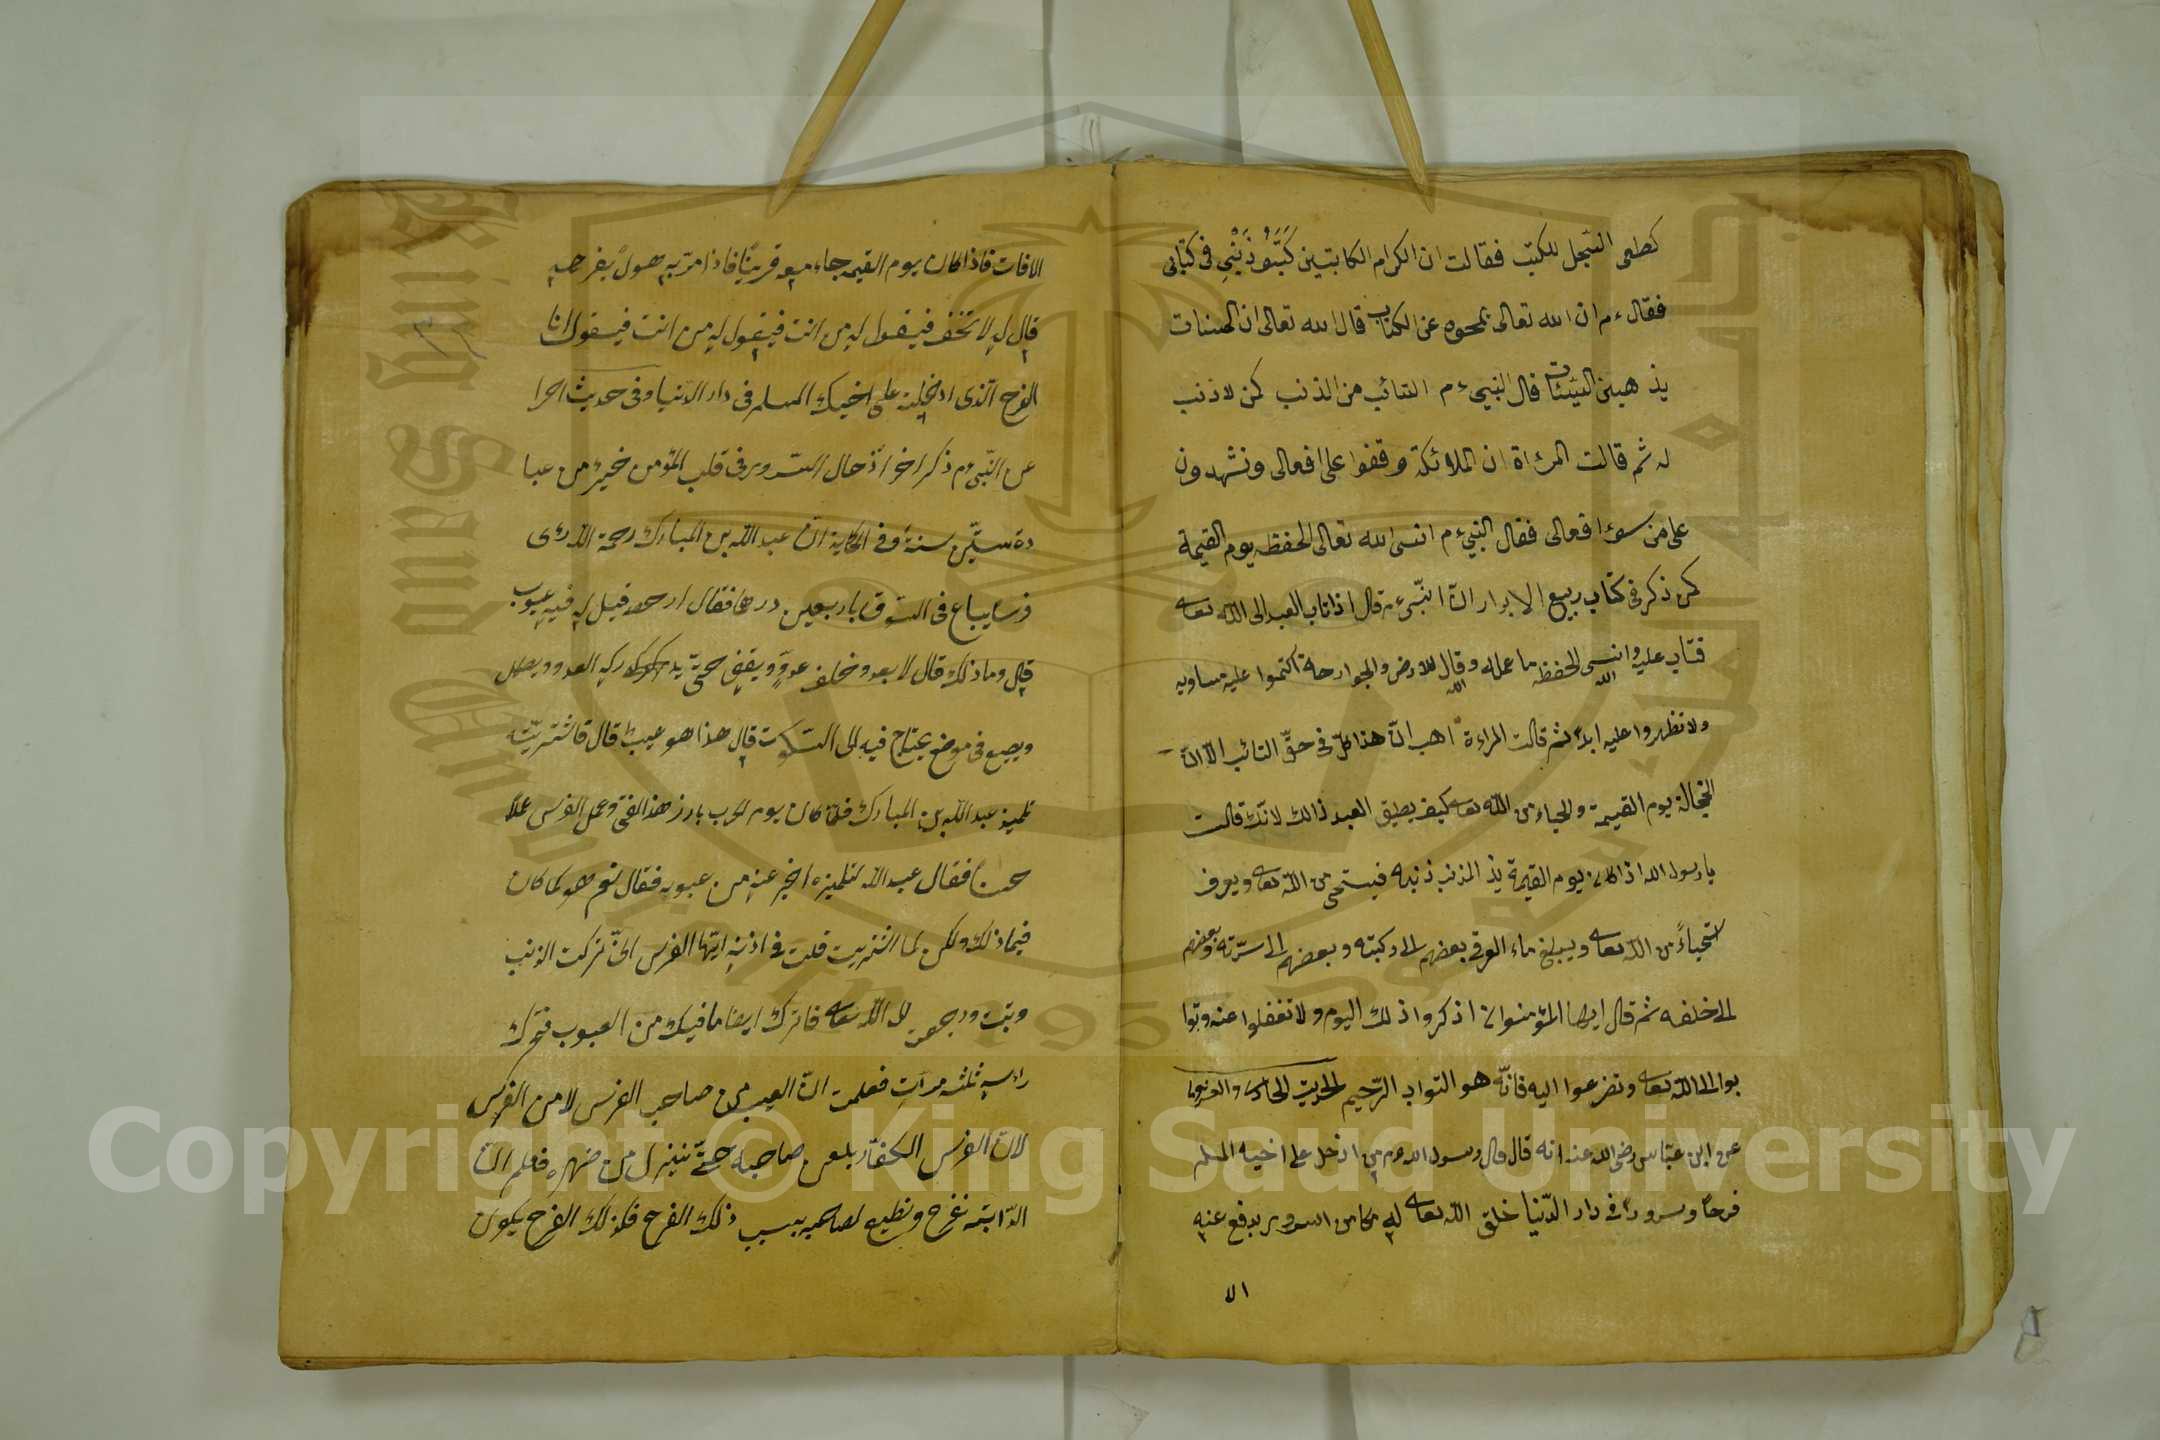 كطى السجل للكتب فقالت ان الكرام الكاتبين كتبوا ذنبى فى كتابى
فقال ءم ان الله تعالى يمحوه عن الكتاب قال الله تعالى ان الحسنات
يذهبن السيئات قال النبى ءم التائب من الذنب كمن لا ذنب
له ثم قالت المرءاة ان الملائكة وقفوا على افعالى ونشهدون
على من سوء افعالى فقال النبى ءم انسى الله تعالى الحفظه يوم القيمة
كن ذكر فى كتاب ربيع الابرار انّ النّبىّ ءم قال اذا تاب العبد الى الله تعا
فتاب عليه وانسى الله الحفظه ما عمله وقال الله للارض والجوارحه اكتموا عليه مساويه
ولا تظهروا عليه ابدا ثم قالت المراءة اهب انّ هذا كلّ فى حقّ التائب الّا انّ
الخجالة يوم القيمة والحياء من الله تعا كيف يطيق العبد ذالك لانّك قالت
يا رسول الله اذا كان يوم القيمة يذ المذنب ذنبه فيستحى من الله تعا ويعرف
استحياءً من الله تعا ويبلغ ماء العرق بعضهم الى ركبته وبعضهم الى سرّته وبعضهم
الى خلفه ثم قال ايها المؤمنوان اذكروا ذلك اليوم ولا تغفلوا عنه وتوا
بوا الى الله تعا وتضرعوا اليه فانّه هو التواب الرّحيم الحديث الحادى والعشرون
عن ابن عبّاس رضى الله عنه انه قال قال رسول الله ءم من ادخل على اخيه المسلم
فرحاً وسروراً فى دار الدّنيا خلق الله تعا له مكان السرور يدفع عنه
الا
الافات فاذا كان يوم القيمه جاء معه قرينًا فاذا مرّ به هولً يفرحه
قال له لا تخف فيقول له من انت فيقول له من انت فيقول انا
الفرح الّذى ادخلته على اخيك المسلم فى دار الدّنيا وفى حديث اخرا
عن النّبى ءم ذكر اخر ادخال السّرور فى قلب المؤمن خير من عبا
دة ستّين سنة وفى الحكاية انّ عبد الله بن المبارك رحمة الله رءى
فرسا يباع فى السّوق باربعين درهما فقال ارخصه قيل له فيه عيوب
قال وما ذلك قال لا يعدو خلف عدوّ ويقف حتّى يدركه العدو ويصهل
ويصيح فى موضع يحتاج فيه الى السّكوت قال هذا هو عيب قال فاشتريّته
تلميذ عبد الله بن المبارك فلمّا كان يوم الحرب بارز هذ الفتى وعمل الفرس عملاً
حسناً فقال عبد الله لتلميذه اخبر عنه من عيوبه فقال نعم هو كما كان
فيما ذلك ولكن لما اشتريت قلت فى اذنه ايّتها الفرس انّى تركت الذنب
وتبت ورجعت الى الله تعا فاترك ايضا ما فيك من العيوب فحرّك
راءسه ثلثه مرّات فعلمت انّ العيب من صاحب الفرس لا من الفرس
لانّ الفرس الكفّار يلعن صاحبه حتّى ينزل من ظهره فعلم انّ
الدّابّته تفرح وتطيع لصاحبه بسبب ذلك الفرح فكذلك الفرح يكون
Copyright © King Saud University